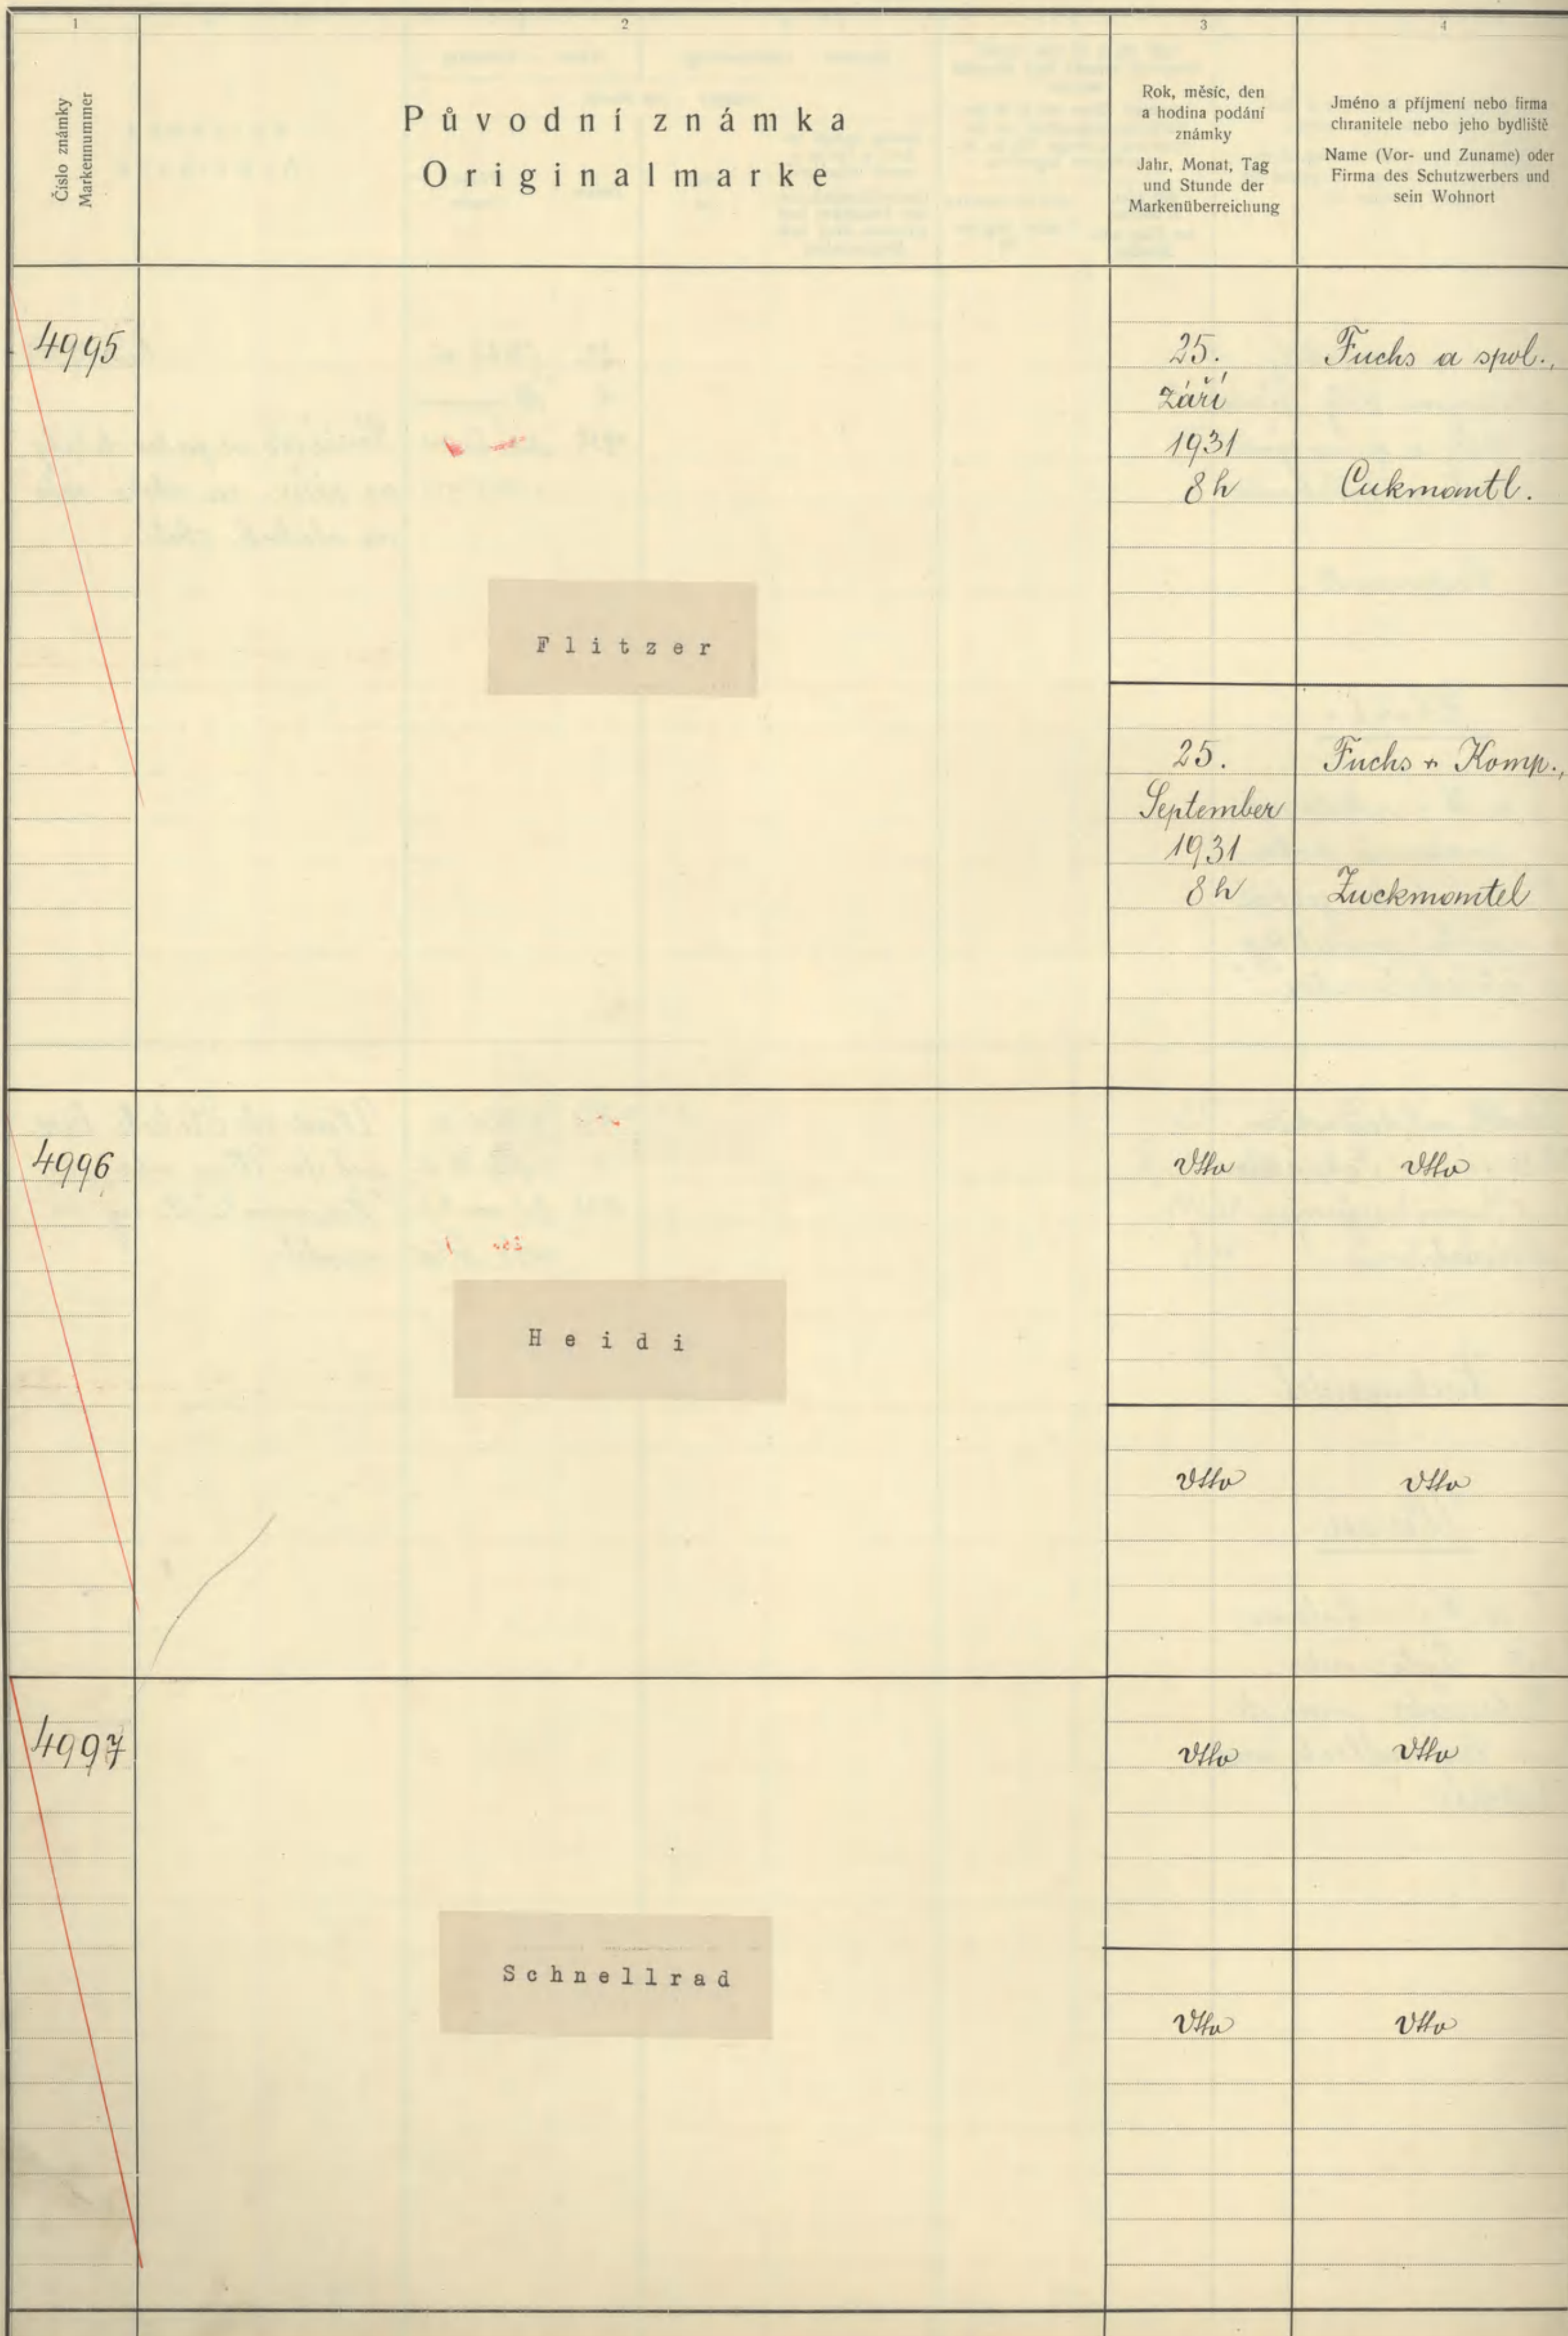 1
2
3
4
Číslo známky
Markennummer
Původní známka
Originalmarke
Rok, měsíc, den
a hodina podání
známky
Jahr, Monat, Tag
und Stunde der
Markenüberreichung
Jméno a příjmení nebo firma
chranitele nebo jeho bydliště
Name (Vor- und Zuname) oder
Firma des Schutzwerbers und
sein Wohnort
4995
25.
září
1931
8h
Fuchs a spol.,
Cukmantl.
Flitzer
25.
September
1931
8h
Fuchs & Komp.,
Zuckmantel
4996
dtto
dtto
Heidi
dtto
dtto
4997
dtto
dtto
Schnellrad
dtto
dtto